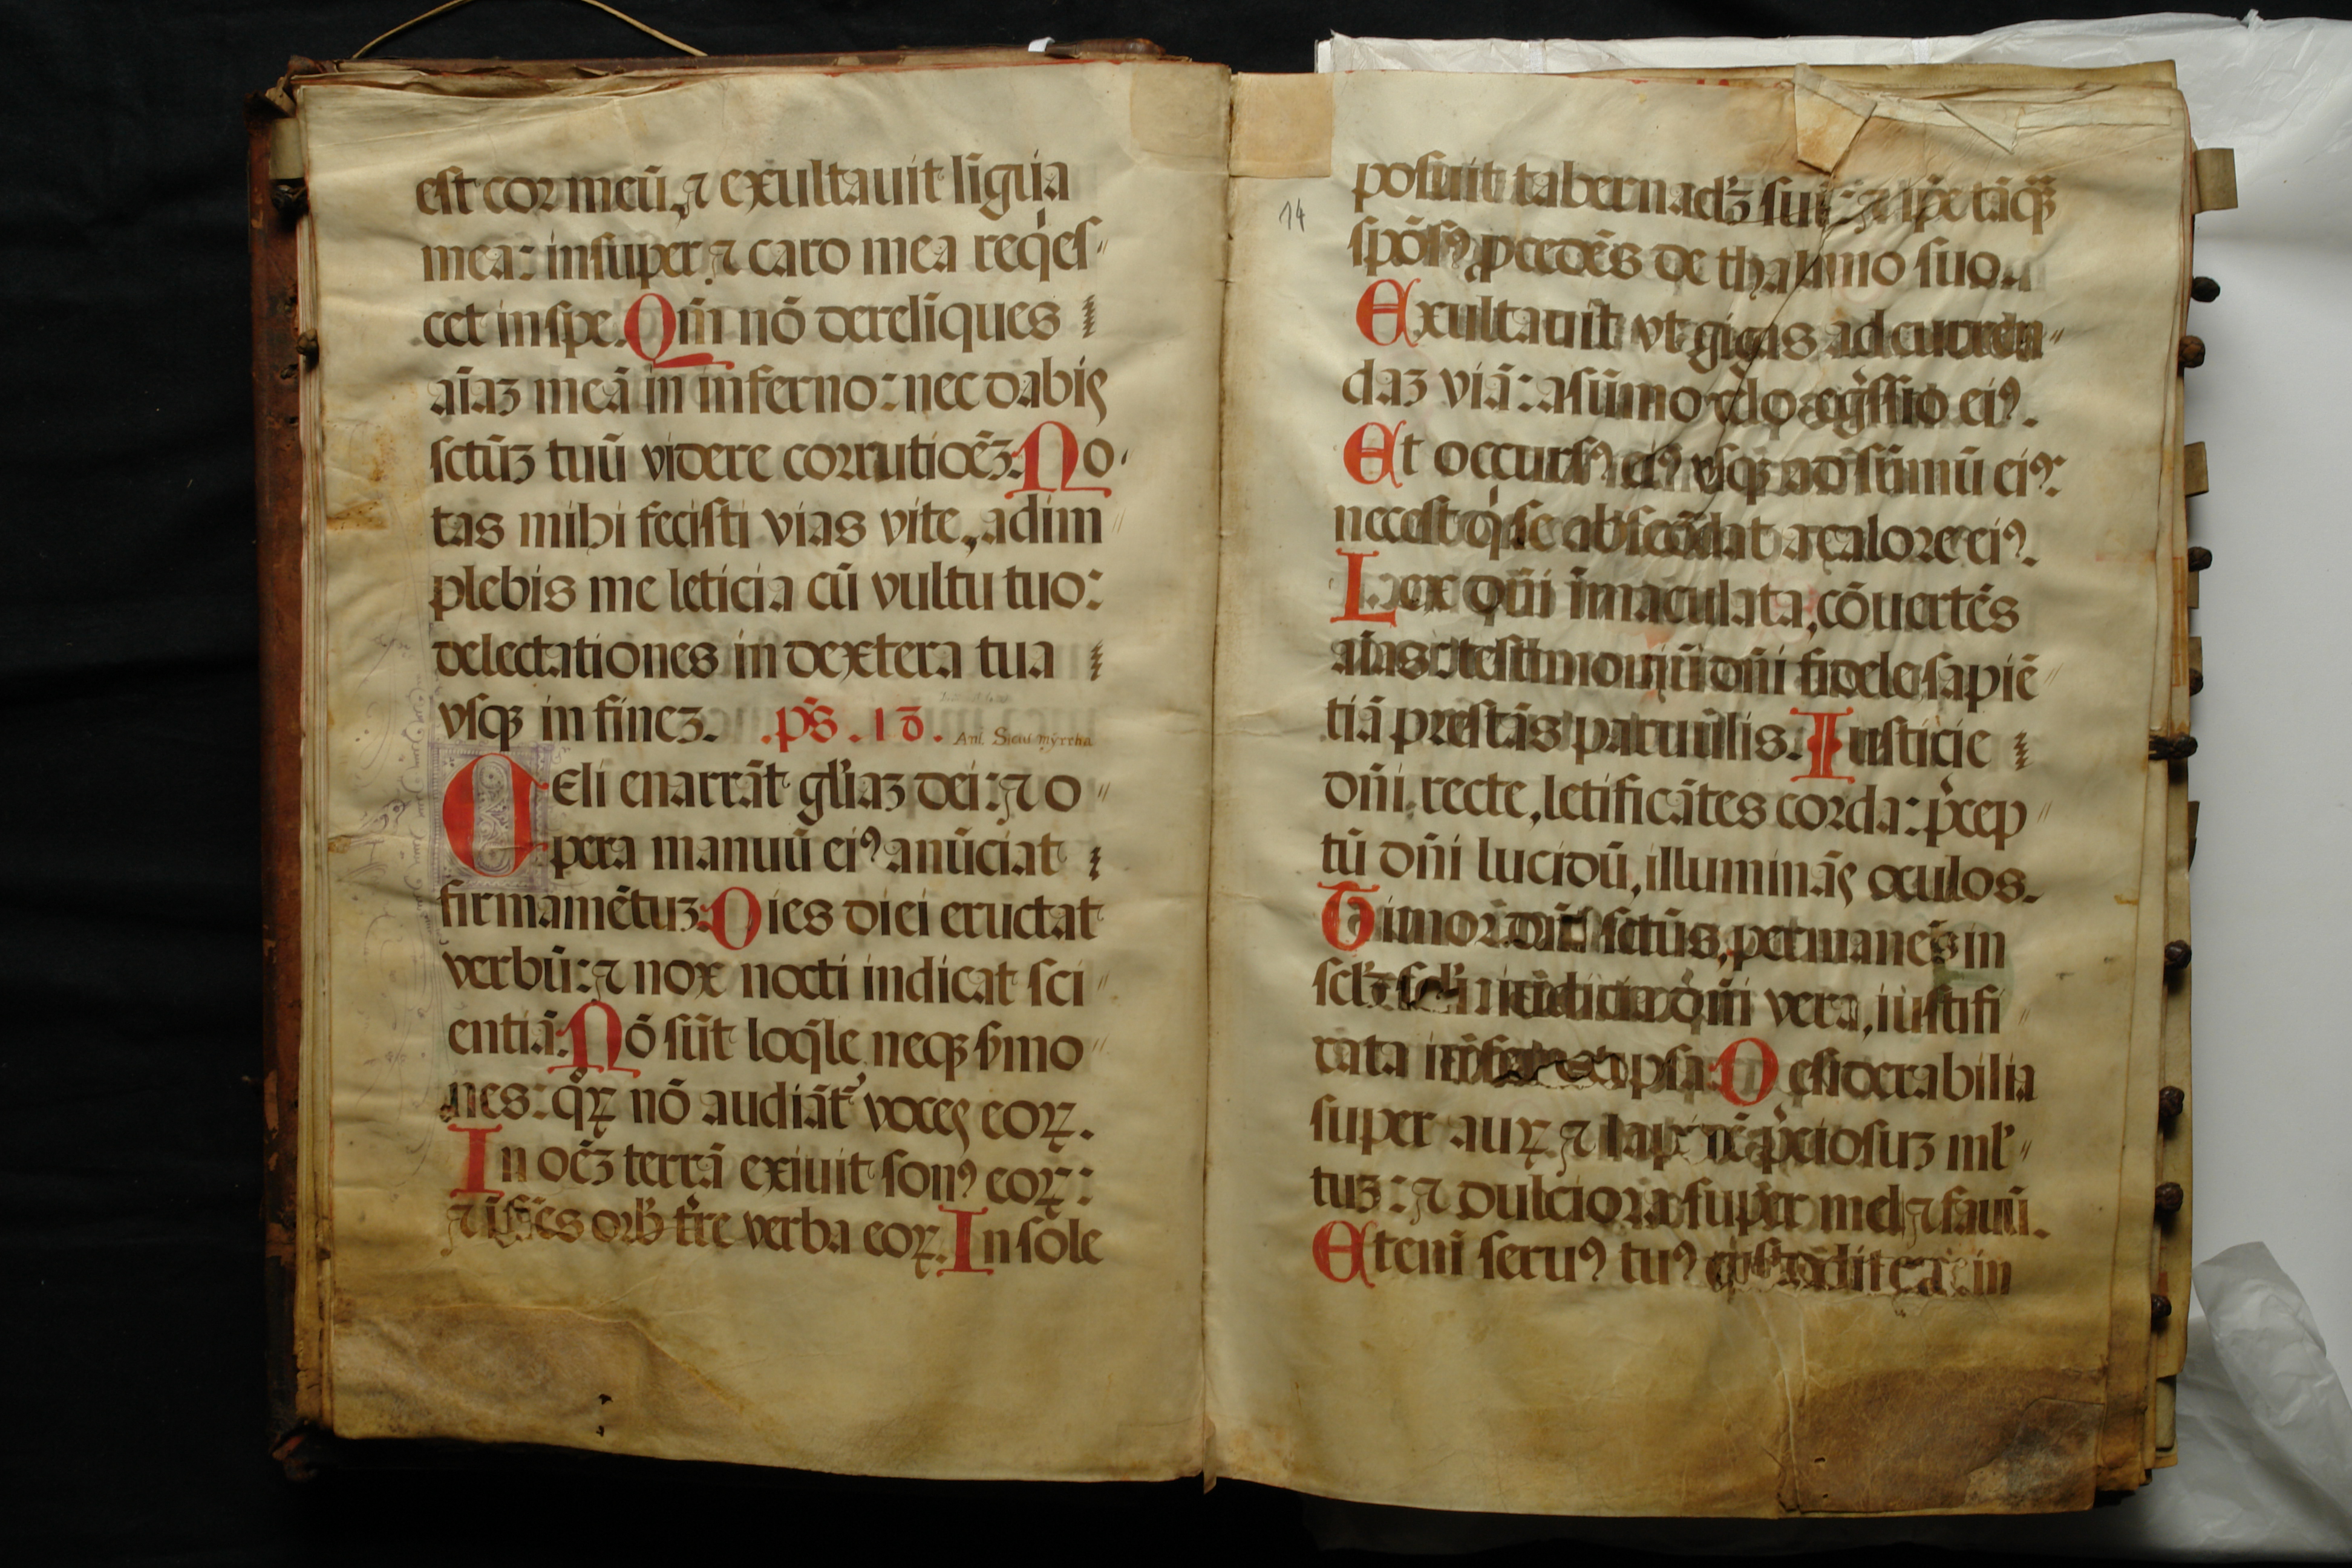 est cor meū, ⁊ exultauit līgua
mea: insuper ⁊ caro mea reqͥes-
cet in spe. Qm̄ nō dereliques
aīaꝫ meā in inferno: nec dabis
sctūꝫ tuū videre corrutioēꝫ. No-
tas mihi fecisti vias vite, adim-
plebis me leticia cū vultu tuo:
delectationes in dextera tua
vsqꝫ in fineꝫ. .ps̄. 18.
Añ. Sicut myrrha
Celi enarrāt gl̄iaꝫ dei: ⁊ o-
pera manuū eiꝰ anūciat
firmamētuꝫ. Dies diei eructat
verbū: ⁊ nox nocti indicat sci-
entiā. Nō sūt loq̄le neqꝫ s̄mo-
nes: qͦꝝ nō audiāt᷑ voces eoꝝ.
In oēꝫ terrā exiuit sonꝰ eoꝝ:
⁊ ī fīes orb̄ tr̄re verba eoꝝ. In sole
14
posuit tabernacl̄ꝫ suū: ⁊ ip̄e tāqꝫ
spōsꝰ ꝓcedēs de thalamo suo.
Exultauit vt gigas ad curren-
daꝫ viā: a sūmo celo egͣssio eiꝰ.
Et occursꝰ eiꝰ vsqꝫ ad sūmū eiꝰ:
nec est qͥ se abscōdat a calore eiꝰ.
Lex dn̄i īmaculata, cōuertēs
aīas: testimoniū dn̄i fidele, sapiē-
tiā prestās paruulis. Iusticie
dn̄i recte, letificātes corda: p̄cep-
tū dn̄i lucidū, illuminās oculos.
Timor dn̄i sctūs, permanēs in
scl̄ꝫ scl̄i: iudicia dn̄i vera, iustifi-
cata ipsa. Desiderabilia
super auꝝ ⁊ lapidē p̄ciosuꝫ ml̄-
tuꝫ: ⁊ dulciora super mel ⁊ fauū.
Eteni seruꝰ tuꝰ custodit ea: in